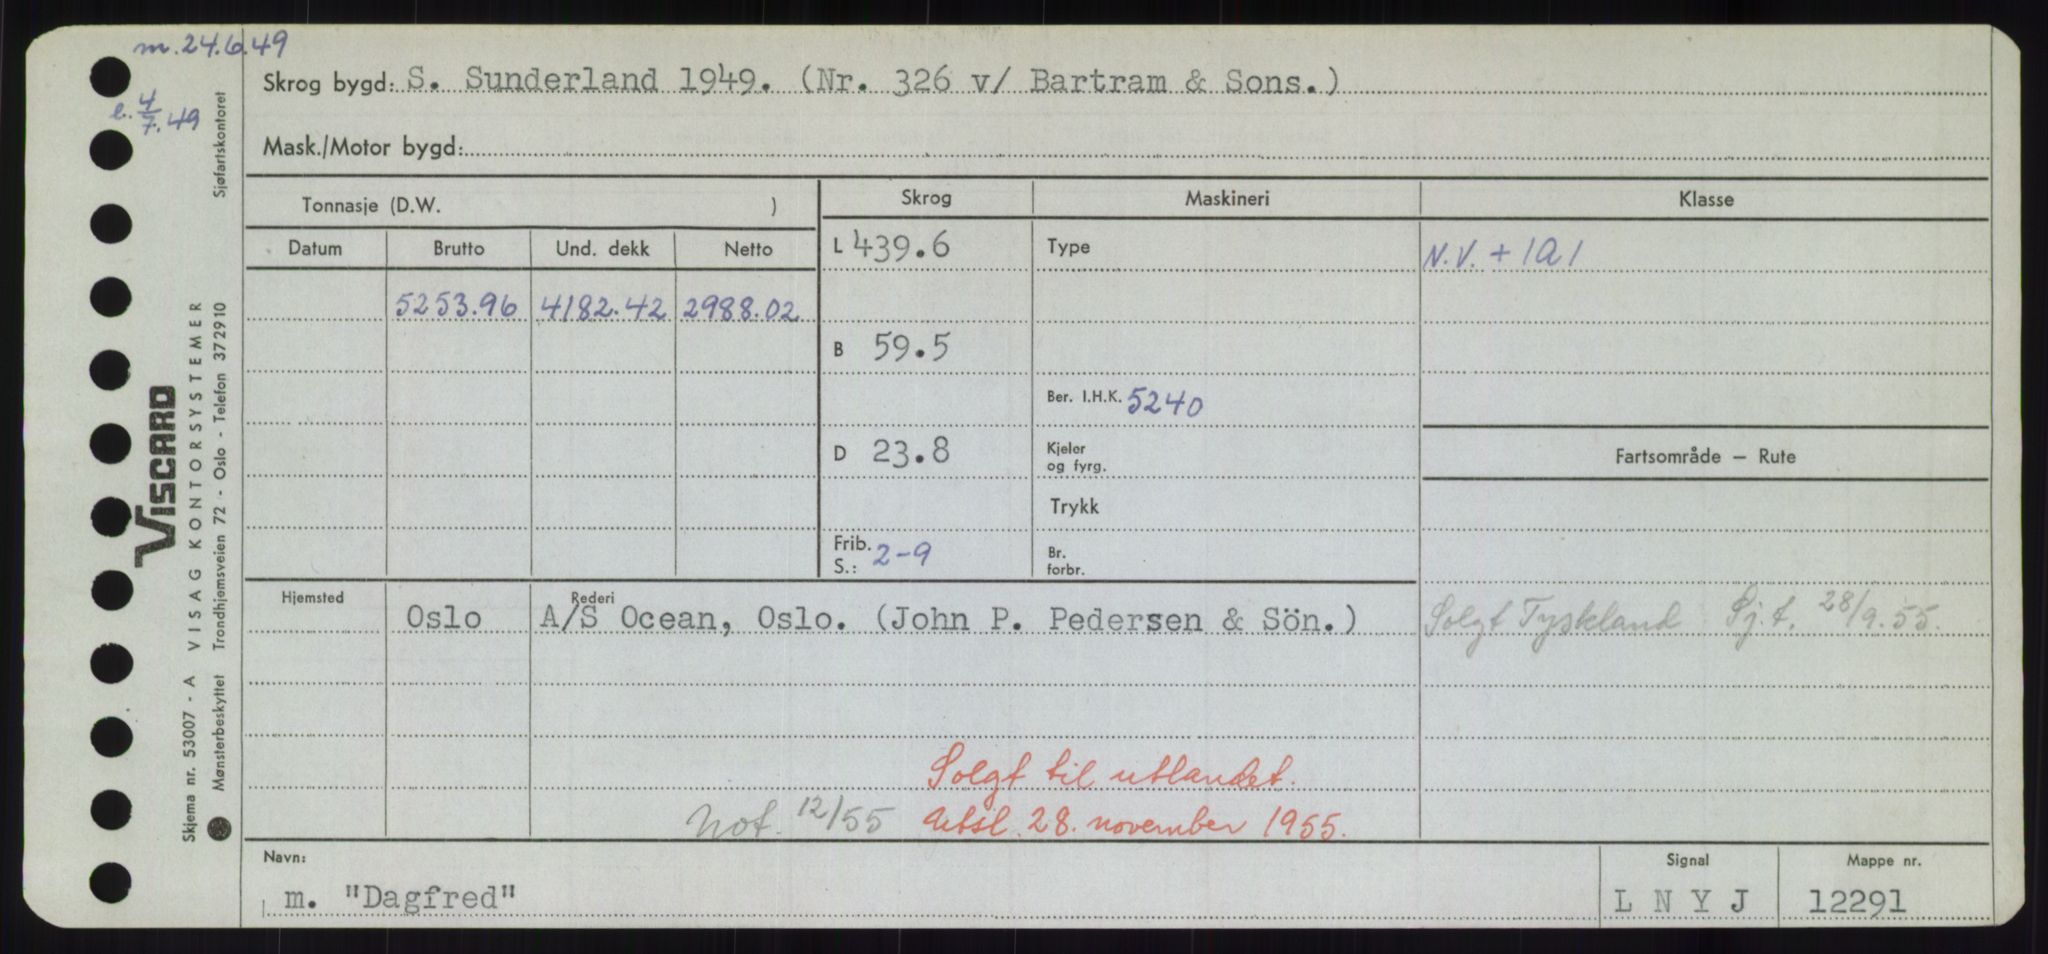 m. 24.6.49
l. 4/7.49
Skrog bygd: S. Sunderland 1949. (Nr. 326 v/ Bartram & Sons.)
Mask./Motor bygd:
Tonnasje (D.W. )
Skrog
Maskineri
Klasse
Datum
Brutto
Und. dekk
Netto
L 439.6
Type
N.V. + 1A1
5253.96
4182.42
2988.02
B 59.5
Ber. I.H.K. 5240
D 23.8
Kjeler
og fyrg.
Fartsområde – Rute
Trykk
Frib.
S.: 2-9
Br.
forbr.
Hjemsted
Oslo
Rederi
A/S Ocean, Oslo. (John P. Pedersen & Sön.)
Solgt Tyskland Sj.t. 28/9.55.
Solgt til utlandet.
Not. 12/55
Utsl. 28. november 1955.
Navn:
m. "Dagfred"
Signal
L N Y J
Mappe nr.
12291
VISCARD
Skjema nr. 53007 - A VISAG KONTORSYSTEMER
Mønsterbeskyttet Trondhjemsveien 72 - Oslo - Telefon 372910 Sjøfartskontoret